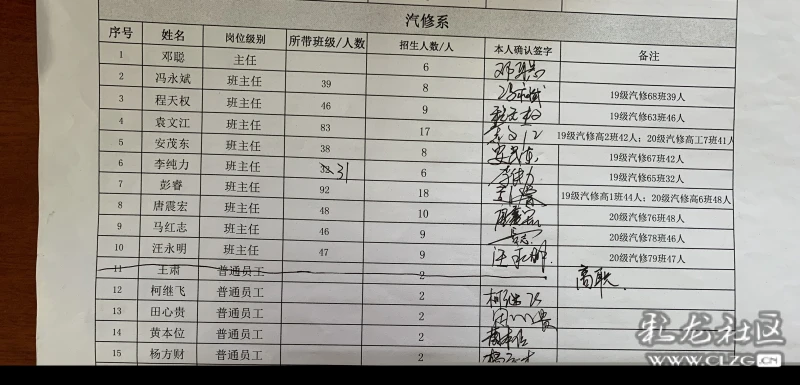 汽修系
序号 姓名 岗位级别 所带班级/人数 招生人数/人 本人确认签字 备注
1 邓聪 主任 6 邓聪
2 冯永斌 班主任 39 8 冯永斌 19级汽修68班39人
3 程天权 班主任 46 9 程天权 19级汽修63班46人
4 袁文江 班主任 83 17 袁文江 19级汽修高2班42人；20级汽修高工7班41人
5 安茂东 班主任 38 8 安茂东 19级汽修67班42人
6 李纯力 班主任 31 6 李纯力 19级汽修65班32人
7 彭睿 班主任 92 18 19级汽修高1班44人；20级汽修高6班48人
8 唐震宏 班主任 48 10 唐震宏 20级汽修76班48人
9 马红志 班主任 46 9 20级汽修78班46人
10 汪永明 班主任 47 9 汪永明 20级汽修79班47人
11 王肃 普通员工 2 高联
12 柯继飞 普通员工 2 柯继飞
13 田心贵 普通员工 2 田心贵
14 黄本位 普通员工 2 黄本位
15 杨方财 普通员工 2 杨方才
龙社区
www.CLZG.cn